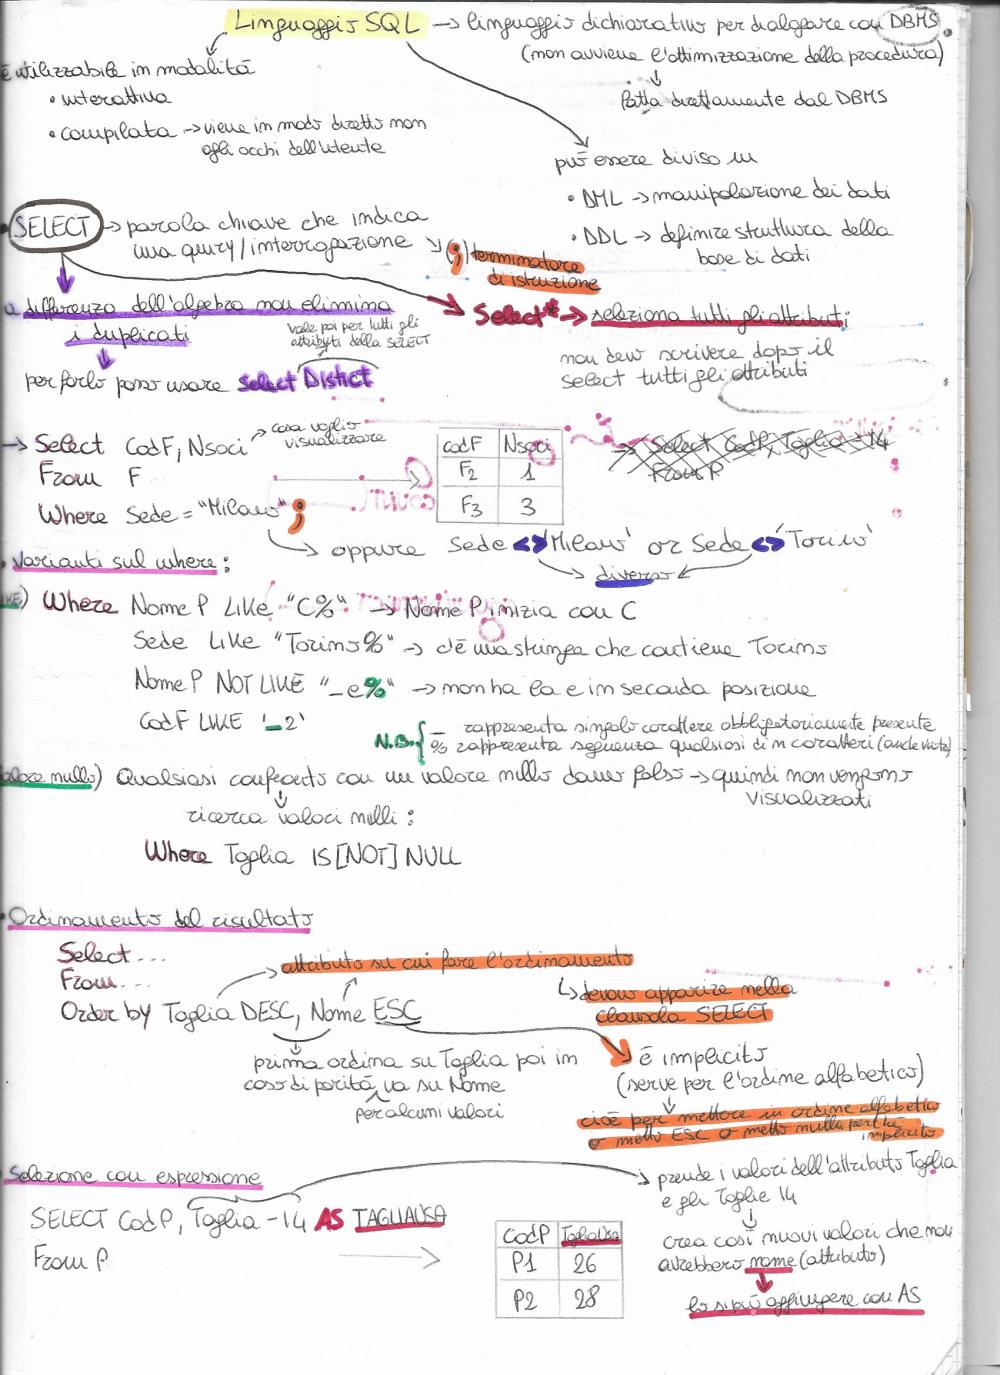 Linguaggio SQL → linguaggio dichiarativo per dialogare con DBMS.
(non avviene l'ottimizzazione della procedura)
↓
fatta direttamente dal DBMS
è utilizzabile in modalità
• interattiva
• compilata → viene in modo diretto non
agli occhi dell'utente
può essere diviso in
• DML → manipolazione dei dati
• DDL → definire struttura della
base di dati
• SELECT → parola chiave che indica
una query/interrogazione
(;) terminatore
di istruzione
a differenza dell'algebra non elimina
i duplicati
vale poi per tutti gli
attributi della SELECT
per farlo posso usare Select Distict
Select* → seleziona tutti gli attributi
non devo scrivere dopo il
select tutti gli attributi
→ Select CodF, Nsoci
cosa voglio
visualizzare
From F
Where Sede = "Milano" ;
codF Nsoci
F2 1
F3 3
Select CodP, Taglia - 14
From P
→ oppure Sede <> 'Milano' or Sede <> 'Torino'
diverso
• Varianti sul where :
LIKE) Where Nome P LIKE "C%" → Nome P inizia con C
Sede LIKE "Torino%" → c'è una stringa che contiene Torino
Nome P NOT LIKE "_e%" → non ha la e in seconda posizione
CodF LIKE '_2'
N.B. { _ rappresenta singolo carattere obbligatoriamente presente
% rappresenta sequenza qualsiasi di n caratteri (anche vuota)
valore nullo) Qualsiasi confronto con un valore nullo danno falso → quindi non vengono
visualizzati
ricerca valori nulli :
Where Taglia IS [NOT] NULL
• Ordinamento del risultato
Select ...
From ...
Order by Taglia DESC, Nome ESC
→ attributo su cui fare l'ordinamento
↳ devono apparire nella
clausola SELECT
prima ordina su Taglia poi in
caso di parità va su Nome
per alcuni valori
è implicito
(serve per l'ordine alfabetico)
cioè per mettere in ordine alfabetico
o metto ESC o metto nulla perchè
implicito
Selezione con espressione
SELECT CodP, Taglia - 14 AS TAGLIAUSA
From P
CodP TagliaUsa
P1 26
P2 28
→ prende i valori dell'attributo Taglia
e gli Toglie 14
↓
crea così nuovi valori che non
avrebbero nome (attributo)
↓
lo si può aggiungere con AS